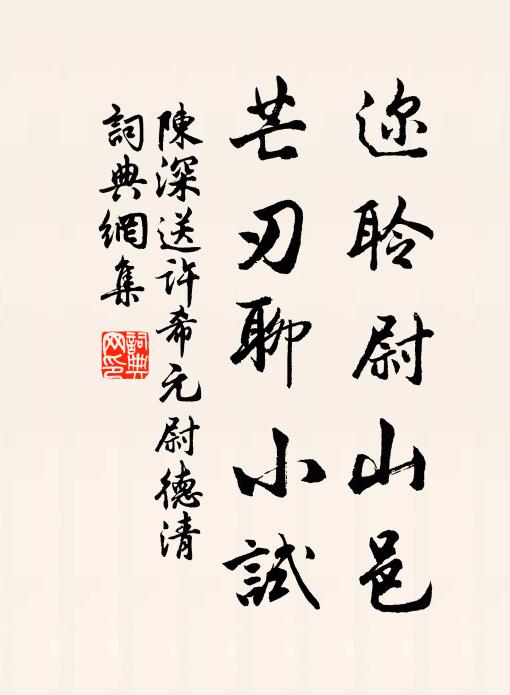 迩聆尉山邑
芒刃聊小試
陳深送许希元尉德清
詞典網集
詞典网印